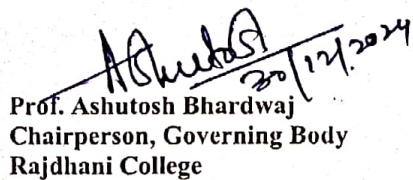 Ashutosh
30/12/2024
Prof. Ashutosh Bhardwaj
Chairperson, Governing Body
Rajdhani College